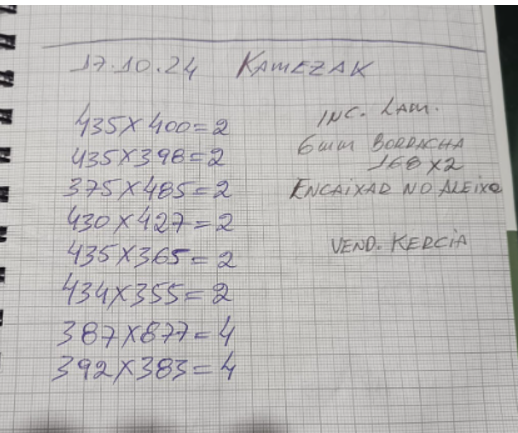 17.10.24 KAMEZAK
435X400=2
435X398=2
375X485=2
430X427=2
435X365=2
434X355=2
387X877=4
392X383=4
INC. LAM.
6mm BORRACHA
168X2
ENCAIXAR NO ALEIXO
VEND. KERCIA